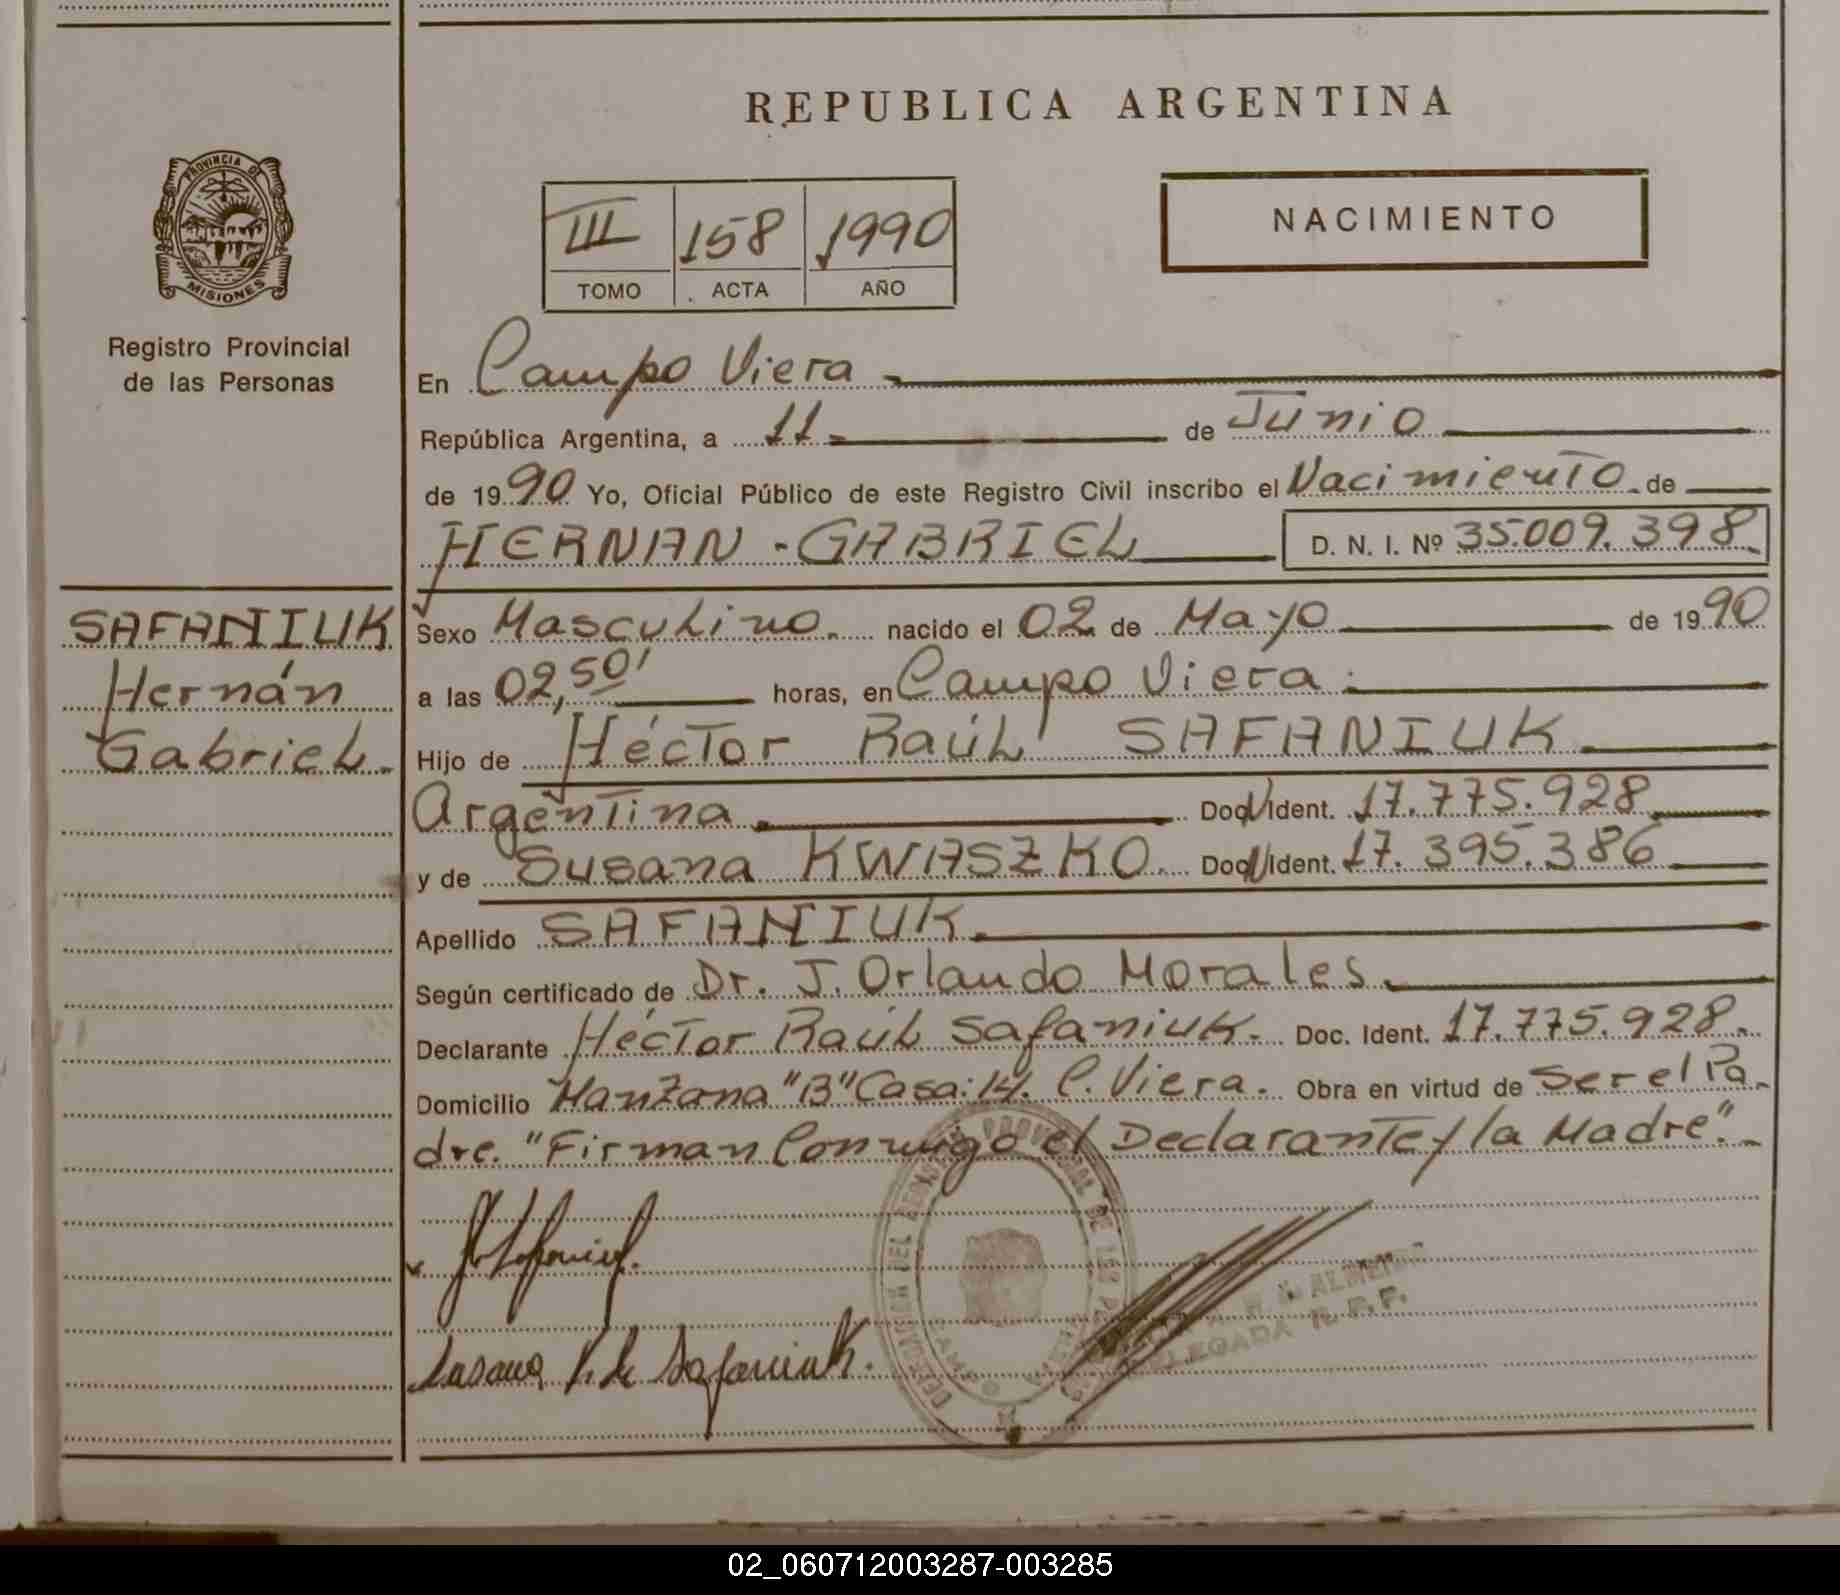 REPUBLICA ARGENTINA
PROVINCIA DE
MISIONES
Registro Provincial
de las Personas
III 158 1990
TOMO ACTA AÑO
NACIMIENTO
En Campo Viera
República Argentina, a 11 de Junio
de 1990 Yo, Oficial Público de este Registro Civil inscribo el Nacimiento de
HERNAN - GABRIEL D. N. I. Nº 35.009.398
SAFANIUK
Hernán
Gabriel.
Sexo Masculino. nacido el 02 de Mayo de 1990
a las 02,50' horas, en Campo Viera.
Hijo de Héctor Raúl SAFANIUK
Argentina Doc. Ident. 17.775.928
y de Susana KWASZKO. Doc. Ident. 17.395.386
Apellido SAFANIUK.
Según certificado de Dr. J. Orlando Morales.
Declarante Héctor Raúl Safaniuk. Doc. Ident. 17.775.928.
Domicilio Manzana "B" Casa: 14. C. Viera. Obra en virtud de Ser el Pa-
dre. "Firman Conmigo el Declarante y la Madre".
Susana K. de Safaniuk.
DELEGADA R.P.P.
02_060712003287-003285